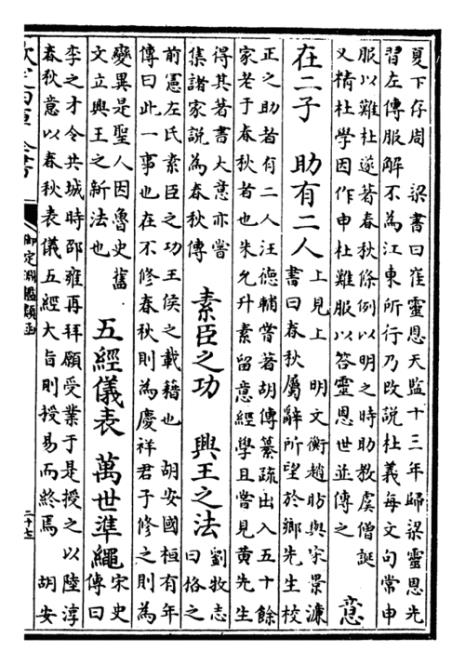 夏下存周　梁書曰崔靈恩天監十三年歸梁靈恩先
習左傳服解不為江東所行乃改說杜義每文句常申
服以難杜遂著春秋條例以明之時助教虞僧誕
又精杜學因作申杜難服以答靈恩世並傳之
意
在二子　助有二人
上見上　明文衡趙昉與宋景濂
書曰春秋屬辭所望於鄉先生校
正之助者有二人汪德輔嘗著胡傳纂疏出入五十餘
家老于春秋者也朱允升素留意經學且嘗見黃先生
得其著書大意亦嘗
集諸家說為春秋傳
素臣之功　興王之法
劉牧志
曰格之
前憲左氏素臣之功王侯之載籍也　胡安國桓有年
傳曰此一事也在不修春秋則為慶祥君子修之則為
變異是聖人因魯史舊
文立興王之新法也
五經儀表　萬世準繩
宋史
傳曰
李之才令共城時邵雍再拜願受業于是授之以陸淳
春秋意以春秋表儀五經大旨則授易而終焉　胡安
御定淵鑑類函
二十七